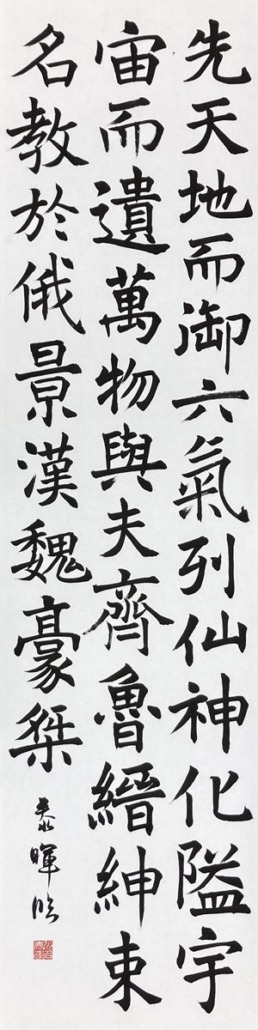 先天地而御六氣列仙神化隘宇
宙而遺萬物與夫齊魯縉紳束
名教於俄景漢魏豪桀
泰暉臨